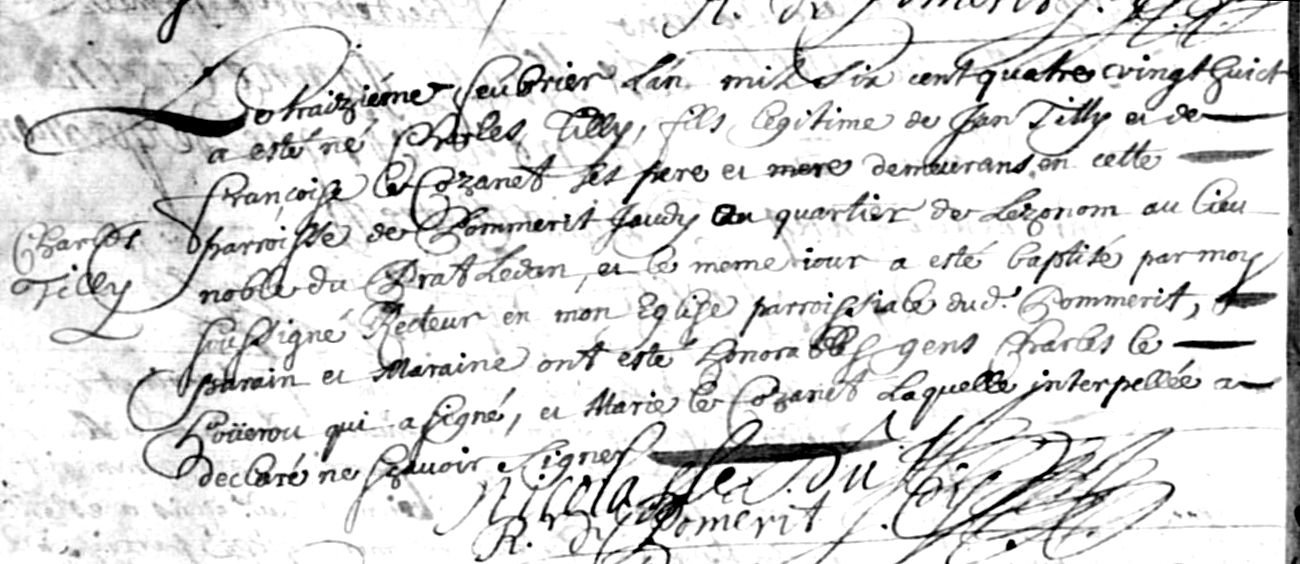 R. du Pomerit
Le traiziéme feubrier L'an mil Six cent quatre vingt huict
a esté né Charles Tilly, fils legitime de Jan Tilly et de
françoise le Cozanet Ses pere et mere demeurans en cette
parroisse de Pommerit Jaudy au quartier de Lezonom au lieu
noble du Prat Ledan, et le meme iour a esté baptisé par moy
soussigné Recteur en mon Eglise parroissiale dud. Pommerit,
parain et Maraine ont esté honorables gens Charles le
Poüerou qui a signé, et Marie le Cozanet Laquelle interpellée a
declaré ne sçavoir Signer
Charles
Tilly
Nicolas
R. du Pomerit